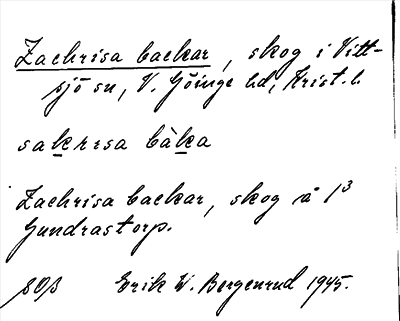 Zachrisa backar, skog i Vitt-
sjö sn, V. Göinge hd, Krist. l.
sakrisa bàka
Zachrisa backar, skog på 1³
Gundrastorp.
Erik W. Bergenrud 1945.